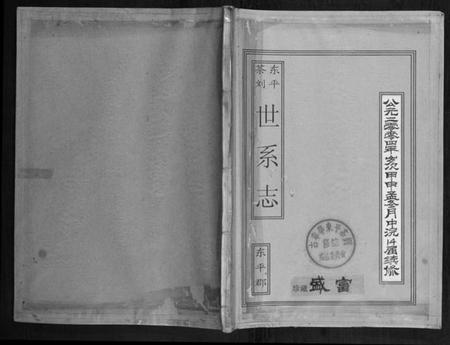 公元二零零四年岁次甲申孟冬月中浣14届续修
东平
茶刘
世系志
东平郡
珍藏
盛富